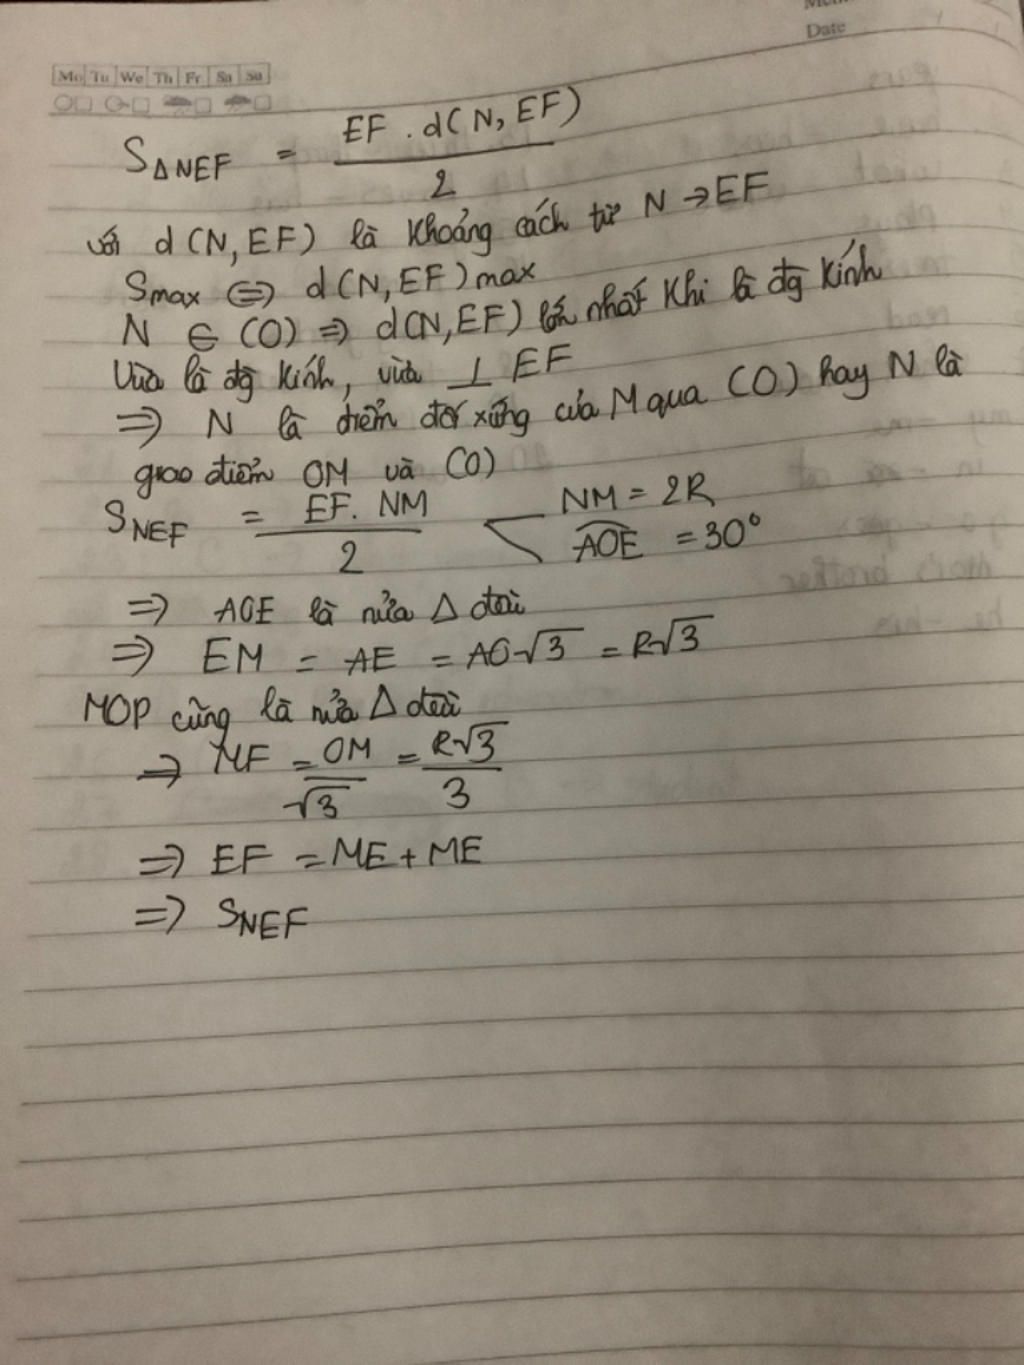 Date
Mo Tu We Th Fr Sa Su
S△NEF = EF . d(N, EF) / 2
với d(N, EF) là khoảng cách từ N → EF
Smax ⇔ d(N, EF) max
N ∈ (O) ⇒ d(N, EF) lớn nhất khi là đg kính
Vừa là đg kính, vừa ⊥ EF
⇒ N là điểm đối xứng của M qua (O) hay N là
giao điểm OM và (O)
SNEF = EF. NM / 2
NM = 2R
AOE = 30°
⇒ AOE là nửa △ đều
⇒ EM = AE = AO√3 = R√3
MOP cũng là nửa △ đều
⇒ MF = OM / √3 = R√3 / 3
⇒ EF = ME + ME
⇒ SNEF